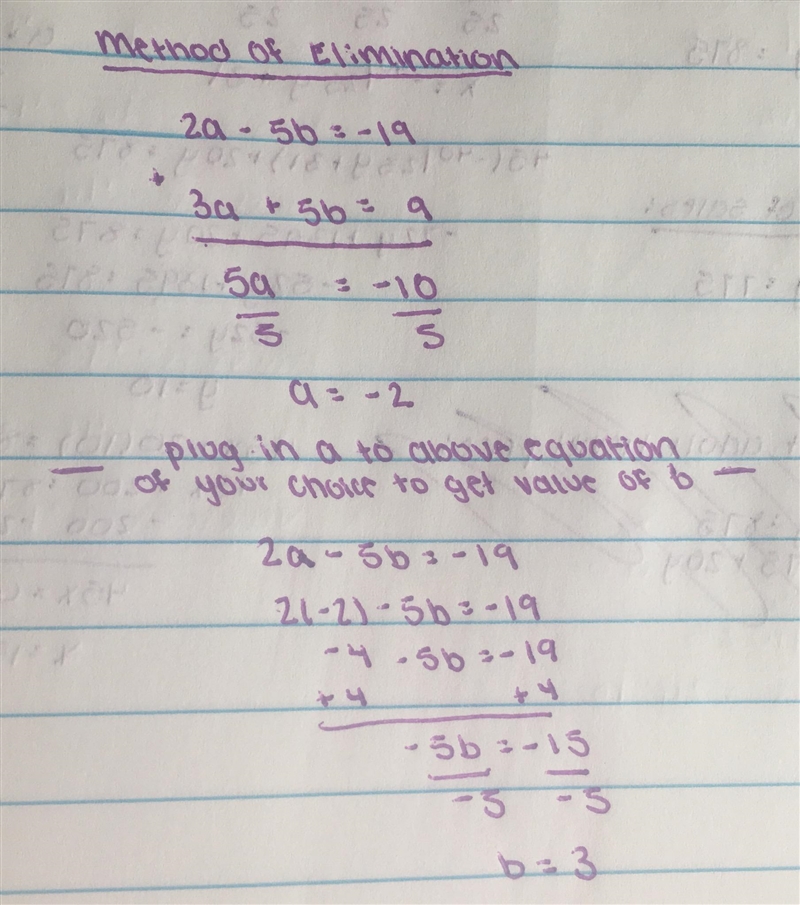 Method of Elimination
2a - 5b = -19
+
3a + 5b = 9
5a = -10
5 5
a = -2
— plug in a to above equation
of your choice to get value of b —
2a - 5b = -19
2(-2) - 5b = -19
-4 -5b = -19
+4 +4
-5b = -15
-5 -5
b = 3